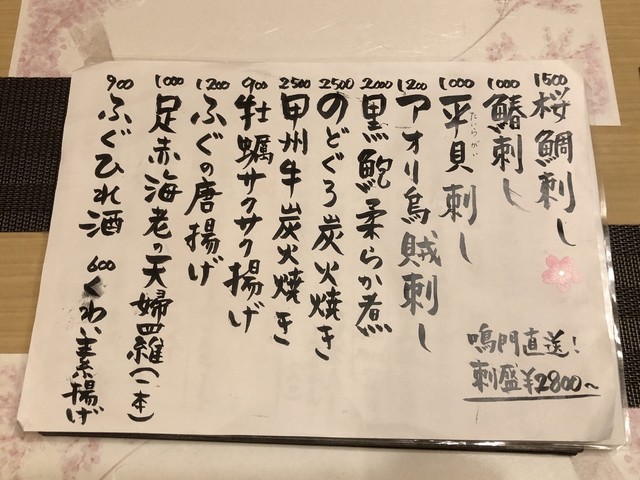 1500 桜鯛刺し
1000 鰆刺し
1000 平貝刺し
たいらがい
1200 アオリ烏賊刺し
2000 黒鮑柔らか煮
2500 のどぐろ炭火焼き
2500 甲州牛炭火焼き
900 牡蠣サクサク揚げ
1200 ふぐの唐揚げ
1000 足赤海老の天婦羅(一本)
900 ふぐひれ酒
600 くわい素揚げ
鳴門直送!
刺盛¥2800〜